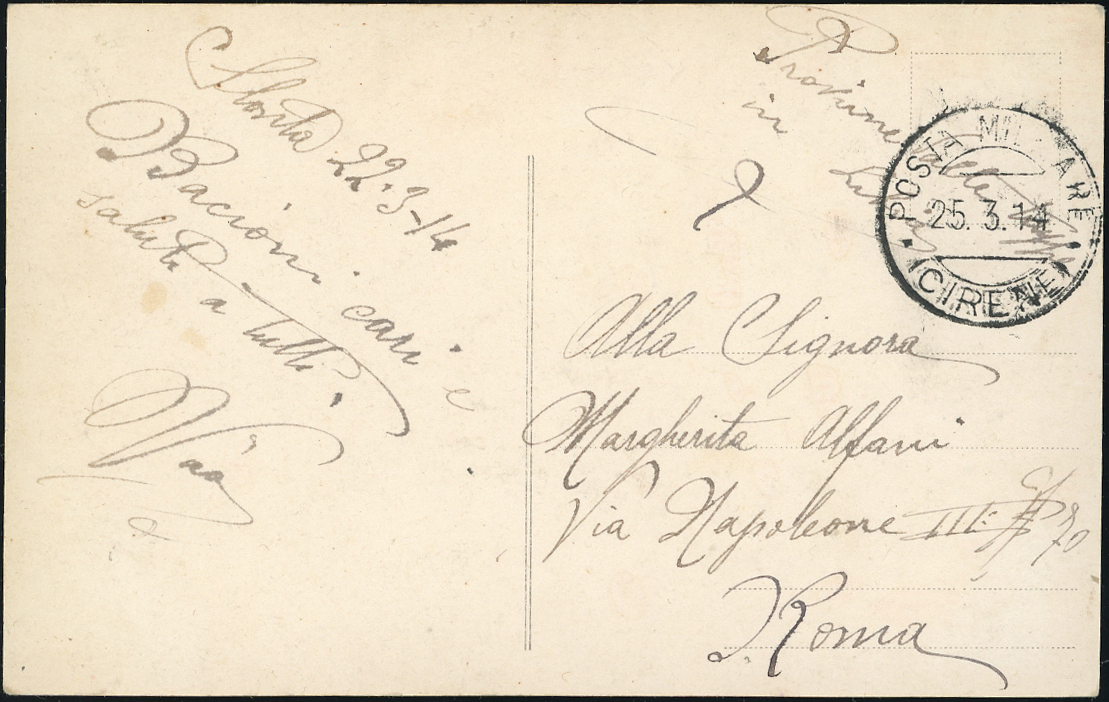 Slonta 22-3-14
Bacioni cari e
saluti a tutti.
Proviene dalle
in
POSTA MILITARE
25. 3. 14
CIRENE
Alla Signora
Margherita Alfani
Via Napoleone III: 70
Roma